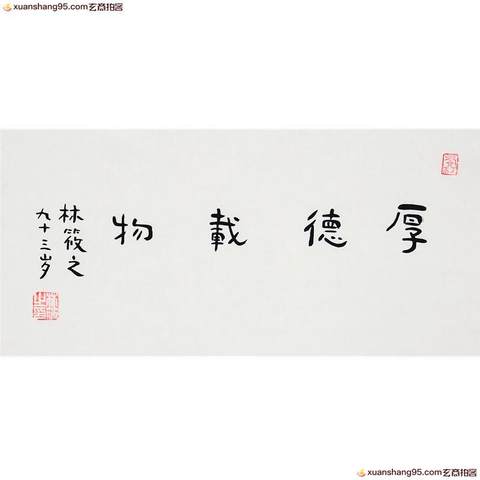 xuanshang95.com 玄商拍客
厚德載物
林筱之
九十三岁
xuanshang95.com 玄商拍客